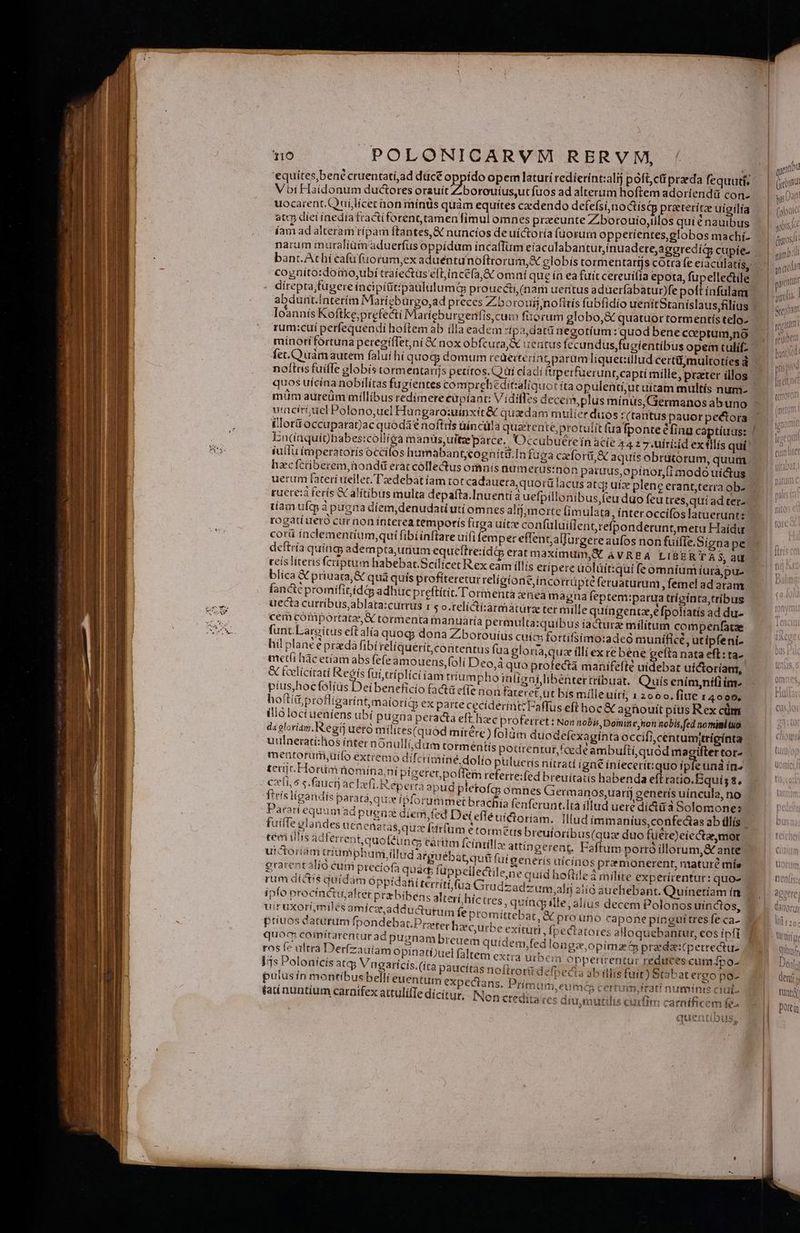 110 POLONICARVM RERVM,
equites,bene cruentati,ad ducē oppido opem laturi redierint:alij pōst,cū præda sequuti.
Vbi Haidonum ductores orauit Zborouius,ut suos ad alterum hostem adoriendū con-
uocarent.Qui,licet non minùs quàm equites cædendo defeßi,noctisq; præteritæ uigilia
atq; diei inedia fracti forent,tamen simul omnes præeunte Zborouio,illos qui è nauibus
iam ad alteram ripam stantes,& nuncios de uictoria suorum opperientes,globos machi-
narum muralium aduersus oppidum incassum eiaculabantur,inuadere,aggrediq; cupie-
bant.At hi cæsa suorum,ex aduentu nostrorum,& globis tormentarijs cōtra se eiaculatis,
cognito:domo,ubi traiectus est,incēsa,& omni que in ea fuit cereuisia epota, supellectile
direpta,fugere incipiūt:paululumq; prouecti,(nam uentus aduersabatur)se post insulam
abdunt.Interim Marieburgo,ad preces Zborouij,nostris subsidio uenit Stanislaus,filius
Ioannis Kostke,præfecti Marieburgensis,cum suorum globo,& quatuor tormentis telo-
rum:cui persequendi hostem ab illa eadem ripa,datū negotium: quod bene cœptum,nō
minori fortuna peregisset,ni & nox obscura,& uentus secundus,fugientibus opem tulis-
set.Quàm autem salui hi quoq; domum reuerterint,parum liquet:illud certū,multoties à
nostris fuisse globis tormentarijs petitos.Qui cladi superfuerunt,capti mille, præter illos
quos uicina nobilitas fugientes comprehēdit:aliquot ita opulenti,ut uitam multis num-
mûm aureûm millibus redimere cupiant: Vidisses decem,plus minùs,Germanos ab uno
uinciri,uel Polono,uel Hungaro:uinxit & quædam mulier duos :(tantus pauor pectora
illorū occuparat)ac quòd à nostris uincula quærente,protulit sua sponte è sinu captiuus:
En(inquit)habes:colliga manus,uitæ parce. Occubuēre in acie 4427.uiri:id ex illis qui
iussu imperatoris occisos humabant,cognitū.In fuga cæsorū,& aquis obrutorum, quum
hæc scriberem,nondū erat collectus omnis numerus:non paruus,opinor,si modo uictus
uerum fateri uellet.Tædebat iam tot cadauera,quorū lacus atq; uiæ plenę erant,terra ob-
ruere:à feris & alitibus multa depasta.Inuenti à uespillonibus,seu duo seu tres,qui ad ter-
tiam usq; à pugna diem,denudati uti omnes alij,morte simulata, inter occisos latuerunt:
rogati uero cur non interea temporis fuga uitæ consuluissent,responderunt,metu Haidu
corū inclementium,qui sibi instare uisi semper essent,assurgere ausos non fuisse.Signa pe
destria quinq; adempta,unum equestre:idq; erat maximum,& AVREA LIBERTAS, au
reis literis scriptum habebat.Scilicet Rex eam illis eripere uoluit:qui se omnium iura,pu-
blica & priuata,& quā quis profiteretur religionē,incorruptè seruaturum , semel ad aram
sanctè promisit,idq; adhuc præstitit.Tormenta ænea magna septem:parua triginta,tribus
uecta curribus,ablata:currus 150.relicti:armaturæ ter mille quingentæ,è spoliatis ad du-
cem comportatæ,& tormenta manuaria permulta:quibus iacturæ militum compensatæ
sunt.Largitus est alia quoq; dona Zborouius cuiq; fortissimo:adeò munificè, ut ipse ni-
hil planè è præda sibi reliquerit,contentus sua gloria,quæ illi ex re bene gesta nata est: ta-
metsi hāc etiam abs se seamouens,soli Deo,à quo profectā manifestè uidebat uictoriam,
& fœlicitati Regis sui,triplici iam triumpho insigni,libenter tribuat. Quis enim,nisi im-
pius,hoc solius Dei beneficio factū esse non fateret,ut bis mille uiri, 12000. siue 14000.
hostiū,profligarint,maioriq; ex parte ceciderint? Fassus est hoc & agnouit pius Rex cùm
illò loci ueniens ubi pugna peracta est,hæc proferret : Non nobis,Domine,non nobis,sed nomini tuo
da gloriam.Regij uerò milites(quod mirēre) solùm duodesexaginta occisi,centum,triginta
uulnerati:hos inter nonnulli,dum tormentis potirentur,fœdè ambusti,quòd magister tor-
mentorum,uiso extremo discrimine,dolio pulueris nitrati ignē iniecerit:quo ipse unà in-
terijt.Horum nomina,ni pigeret,possem referre:sed breuitatis habenda est ratio.Equi,8.
cæsi,65.faucij ac læsi.Reperta apud plerosq; omnes Germanos,uarij generis uincula,no
stris ligandis parata,quæ ipsorummet brachia senserunt.Ita illud uerè dictū à Solomone:
Parari equum ad pugnæ diem,sed Dei esse uictoriam. Illud immanius,confectas ab illis
fuisse glandes uenenatas,quæ sursum è tormētis breuioribus(quæ duo fuēre)eiectæ,mor
tem illis adferrent,quotcunq; earum scintillæ attingerent. Fastum porrò illorum,& ante
uictoriam triumphum,illud arguebat,quū sui generis uicinos præmonerent, maturè mis
grarent aliò cum preciosa quaq; suppellectile,ne quid hostile à milite experirentur: quo-
rum dictis quidam oppidani territi,sua Grudzadzum,alij aliò auehebant. Quinetiam in
ipso procinctu,alter præbibens alteri,hic tres, quinq; ille,alius decem Polonos uinctos,
uir uxori,miles amicæ,adducturum se promittebat, & pro uno capone pingui tres se ca-
ptiuos daturum spondebat.Præter hæc,urbe exituri , spectatores alloquebantur, eos ipsi
quoq; comitarentur ad pugnam breuem quidem,sed longæ,opimæq; prædæ:(perrectu-
ros se ultra Dersszauiam opinati)uel saltem extra urbem opperirentur reduces cum spo-
lijs Polonicis atq; Vngaricis.(ita paucitas nostrorū despecta ab illis fuit) Stabat ergo po-
pulus in montibus belli euentum expectans. Primum,eumq; certum,irati numinis ciui-
tati nuntium carnifex attulisse dicitur. Non credita res diu,mutilis cursim carnificem se-
quentibus,